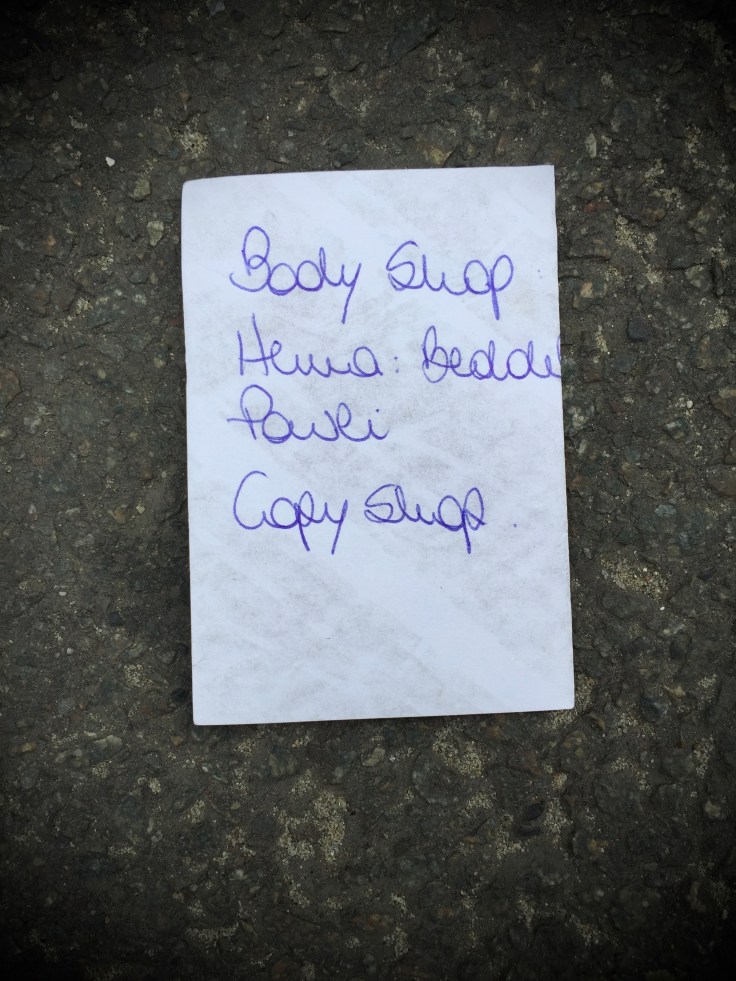 Body Shop
Hema: Bedde
Copy Shop.